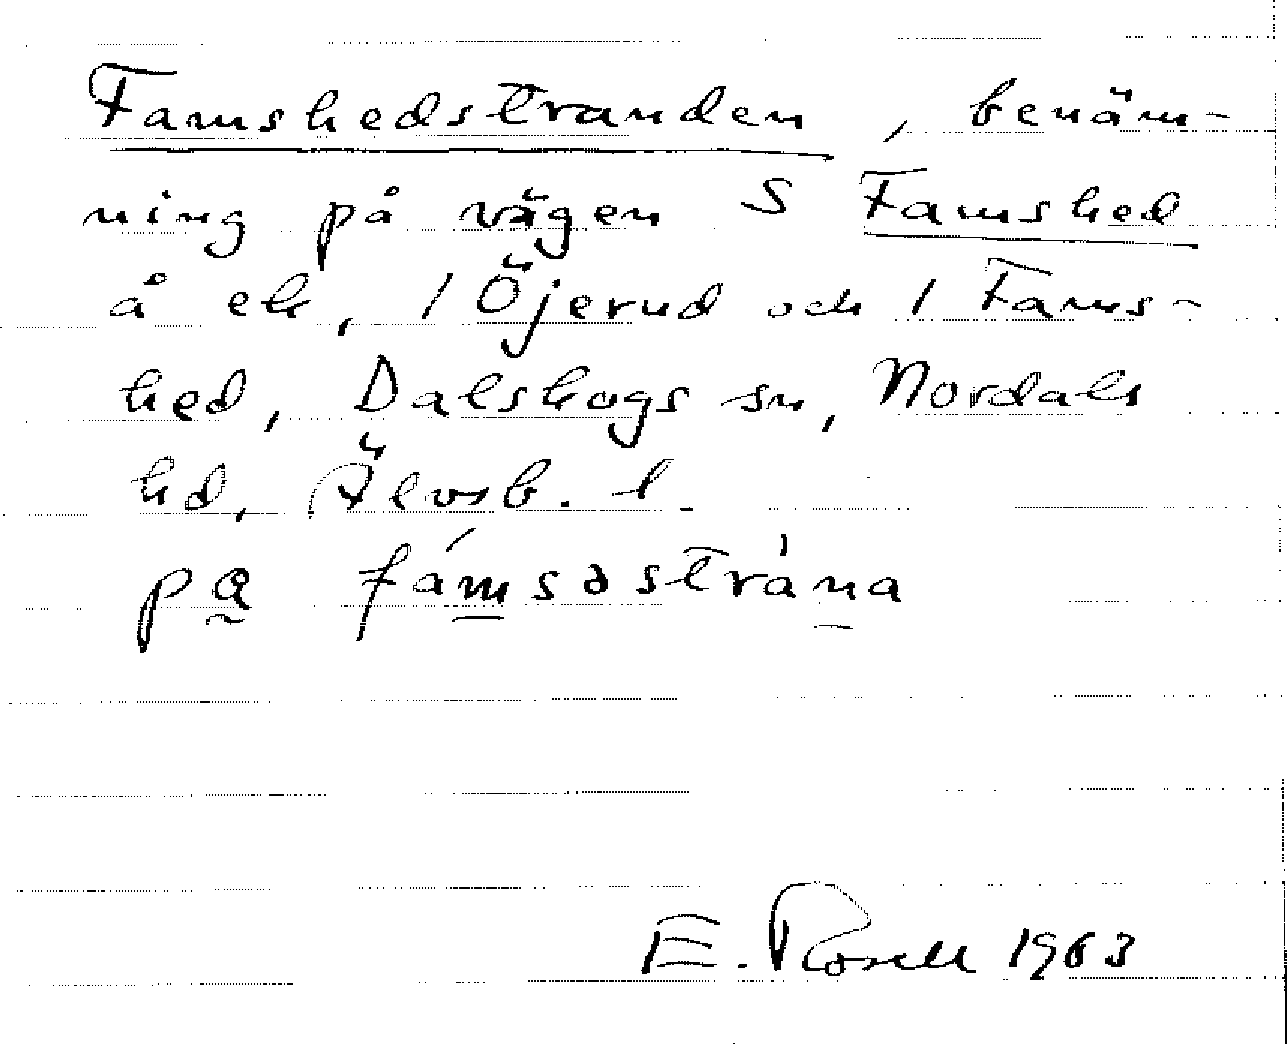 Famshedstranden, benäm-
ning på vägen S Famshed
å ek, 1 Öjerud och 1 Fams-
hed, Dalskogs sn, Nordals
hd, Älvsb. l.
pa fámsəstràna
E. Rosell 1963